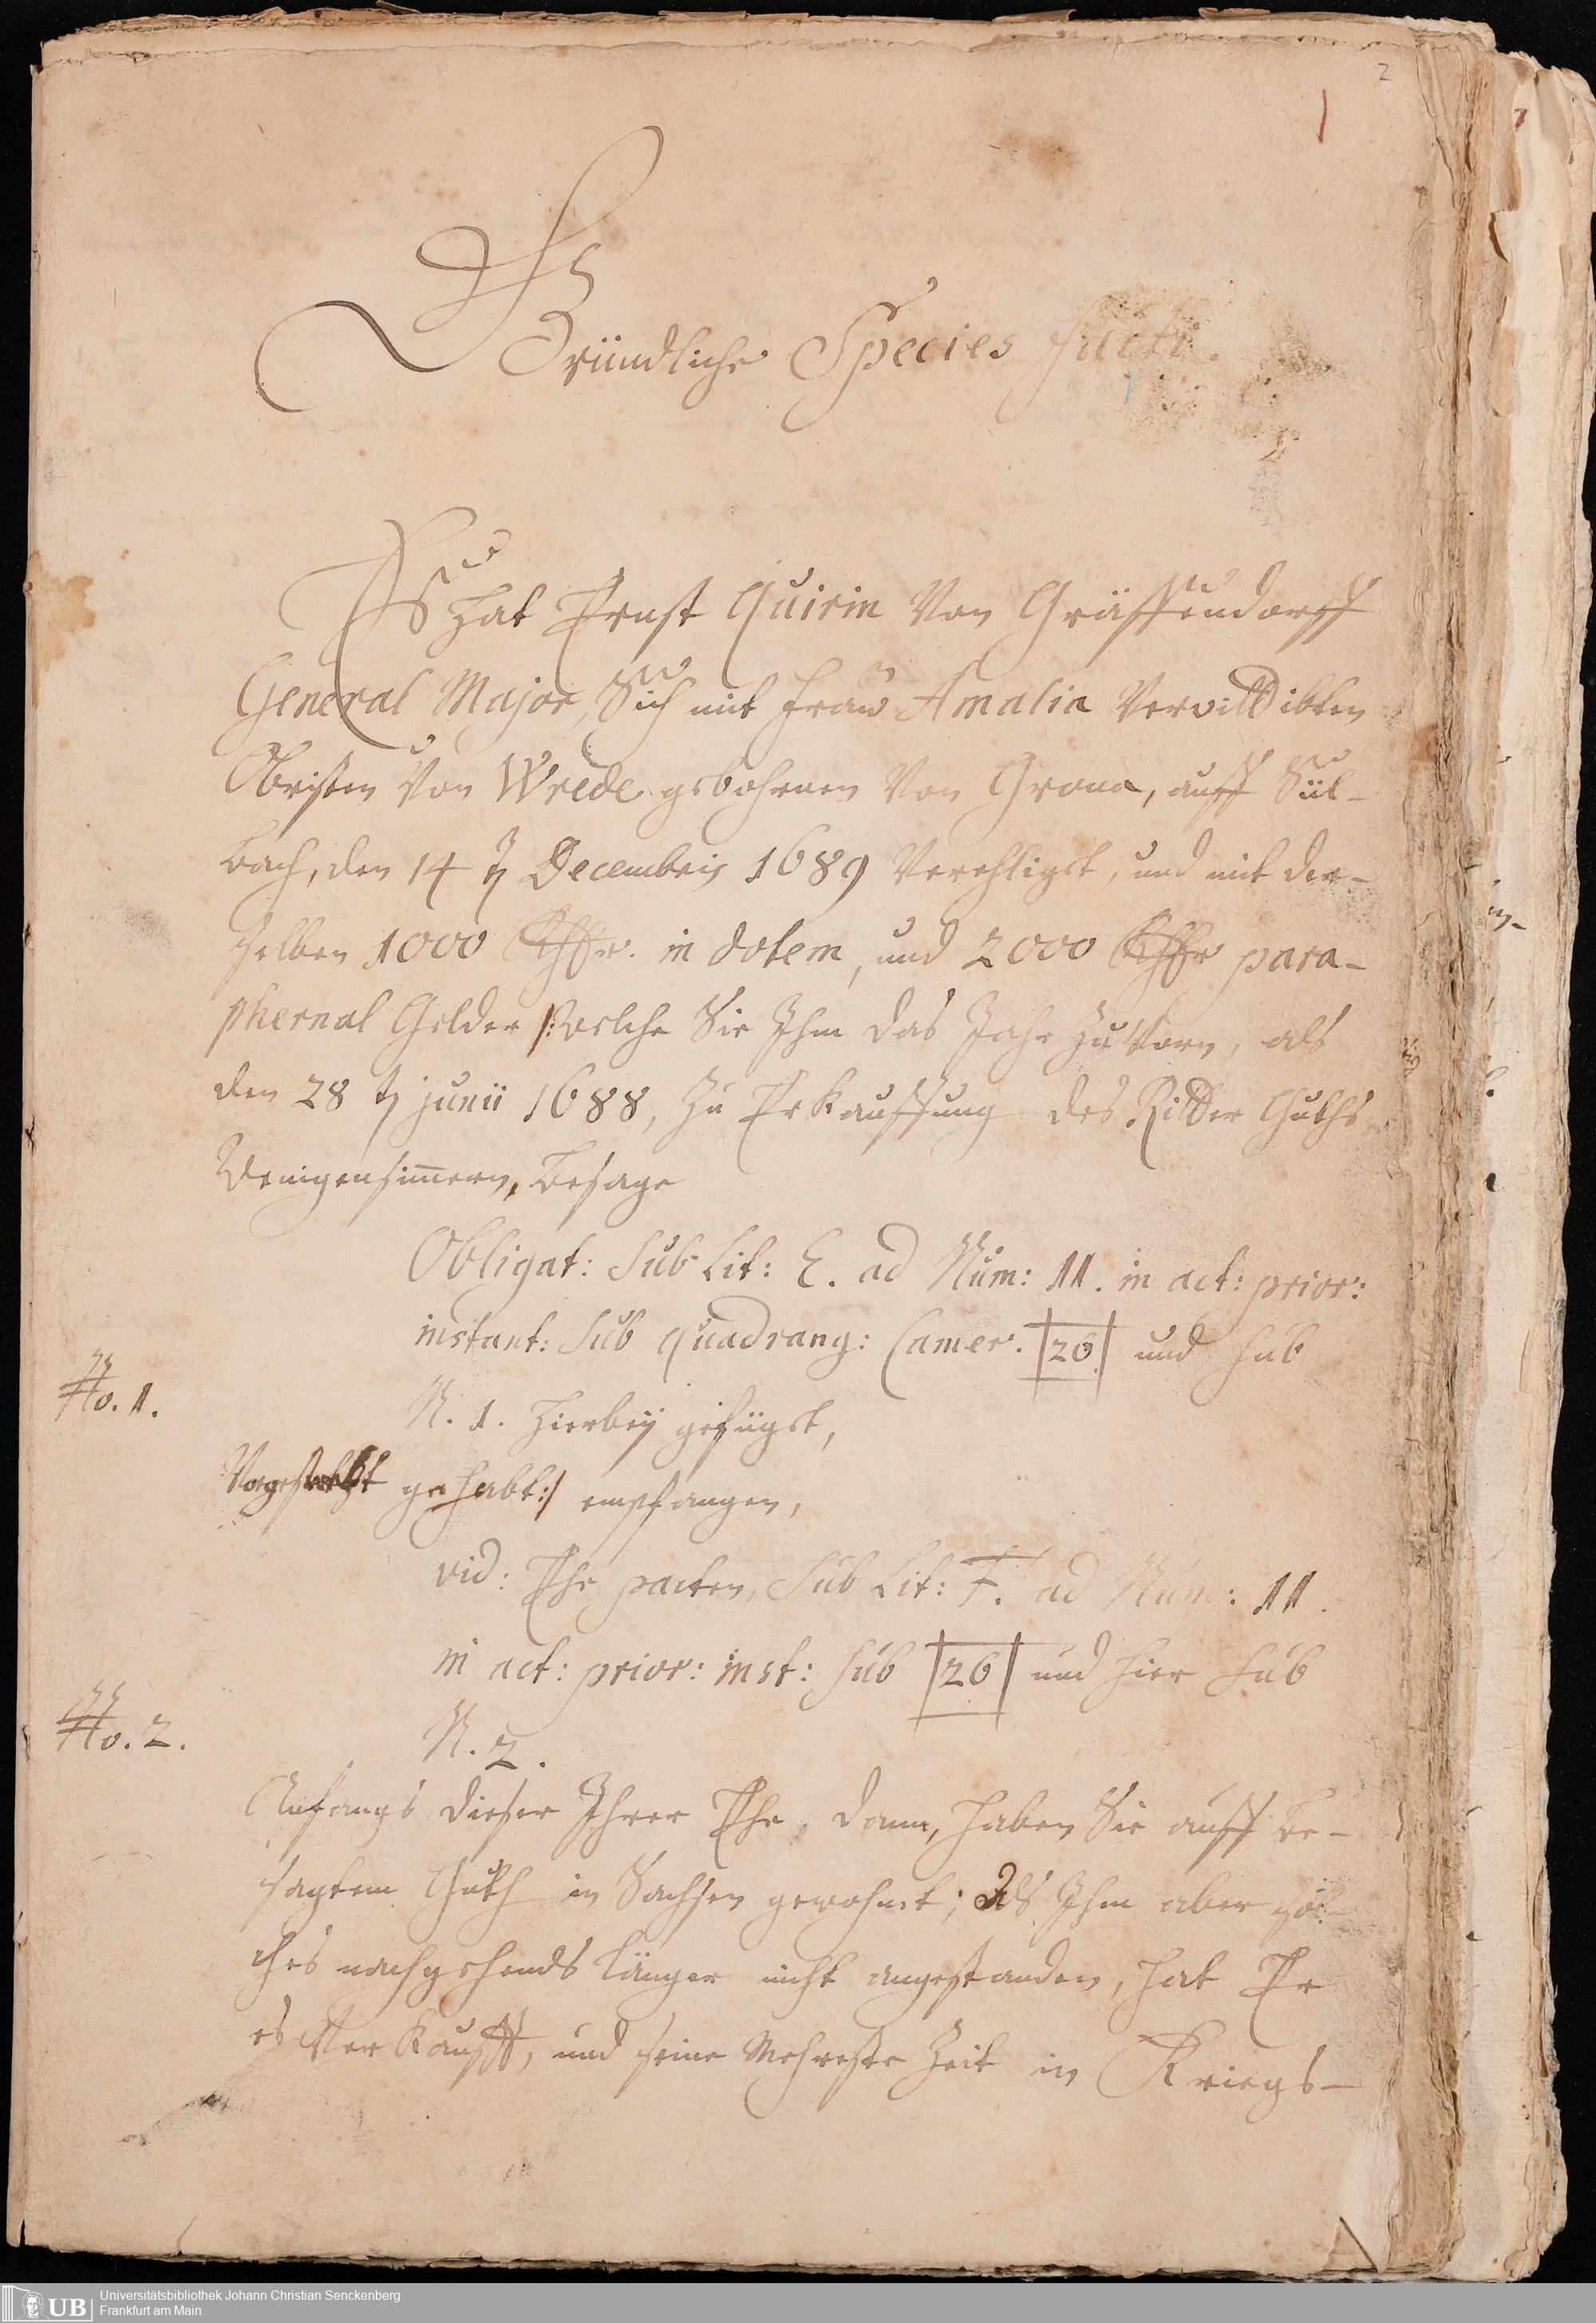 2
1
Gründliche Species facti.
Es hat Ernst Quirin Von Gräffendorff
General Major, Sich mit Fraw Amalia Verwittibten
Obristen Von Wrede gebohrnen Von Grona, auff Sül-
bach, den 14 ty Decembris 1689 Verehligt, und mit der-
selben 1000 Rthlr. in dotem, und 2000 Rthlr para-
phernal Gelder /:welche Sie Ihm das Jahr zuvorn, als
den 28 ty junii 1688, zu Erkauffung des Ritter Guths
Wenigensim̄ern, besage
Obligat: sub Lit: E. ad Num: 11. in act: prior:
instant: sub quadrang: Camer. |26| und sub
No. 1.
N. 1. hierbeÿ gefügt,
Vorgestreckt gehabt:/ empfangen,
vid: Ehe pacten, sub Lit: F. ad Num: 11.
in act: prior: inst: sub |26| und hier sub
No. 2.
N. 2.
Anfangs dieser Ihrer Ehe, dann, haben Sie auff be-
sagtem Guth in Sachsen gewohnt; Als Ihm aber sol-
ches nachgehends länger nicht angestanden, hat Er
es Verkaufft, und seine Mehreste Zeit in Kriegs-
UB
Universitätsbibliothek Johann Christian Senckenberg
Frankfurt am Main